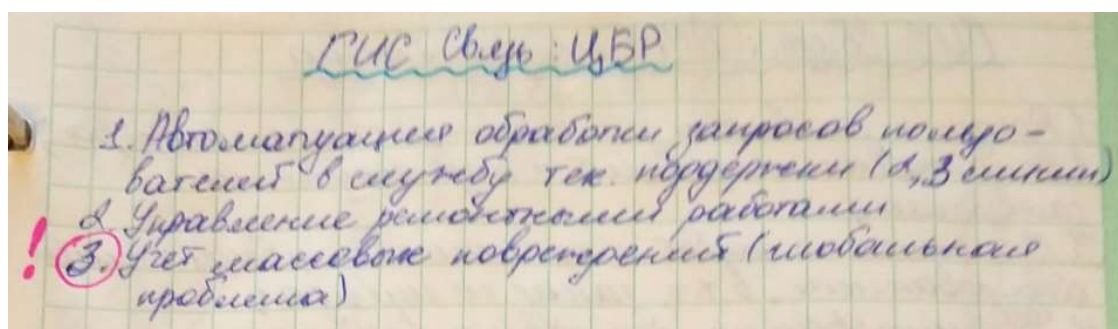 ГИС Связь: ЦБР
1. Автоматизация обработки запросов пользо-
вателей в службу тех. поддержки (2,3 линии)
2. Управление ремонтными работами
! 3. Учет массовых повреждений (глобальная
проблема)